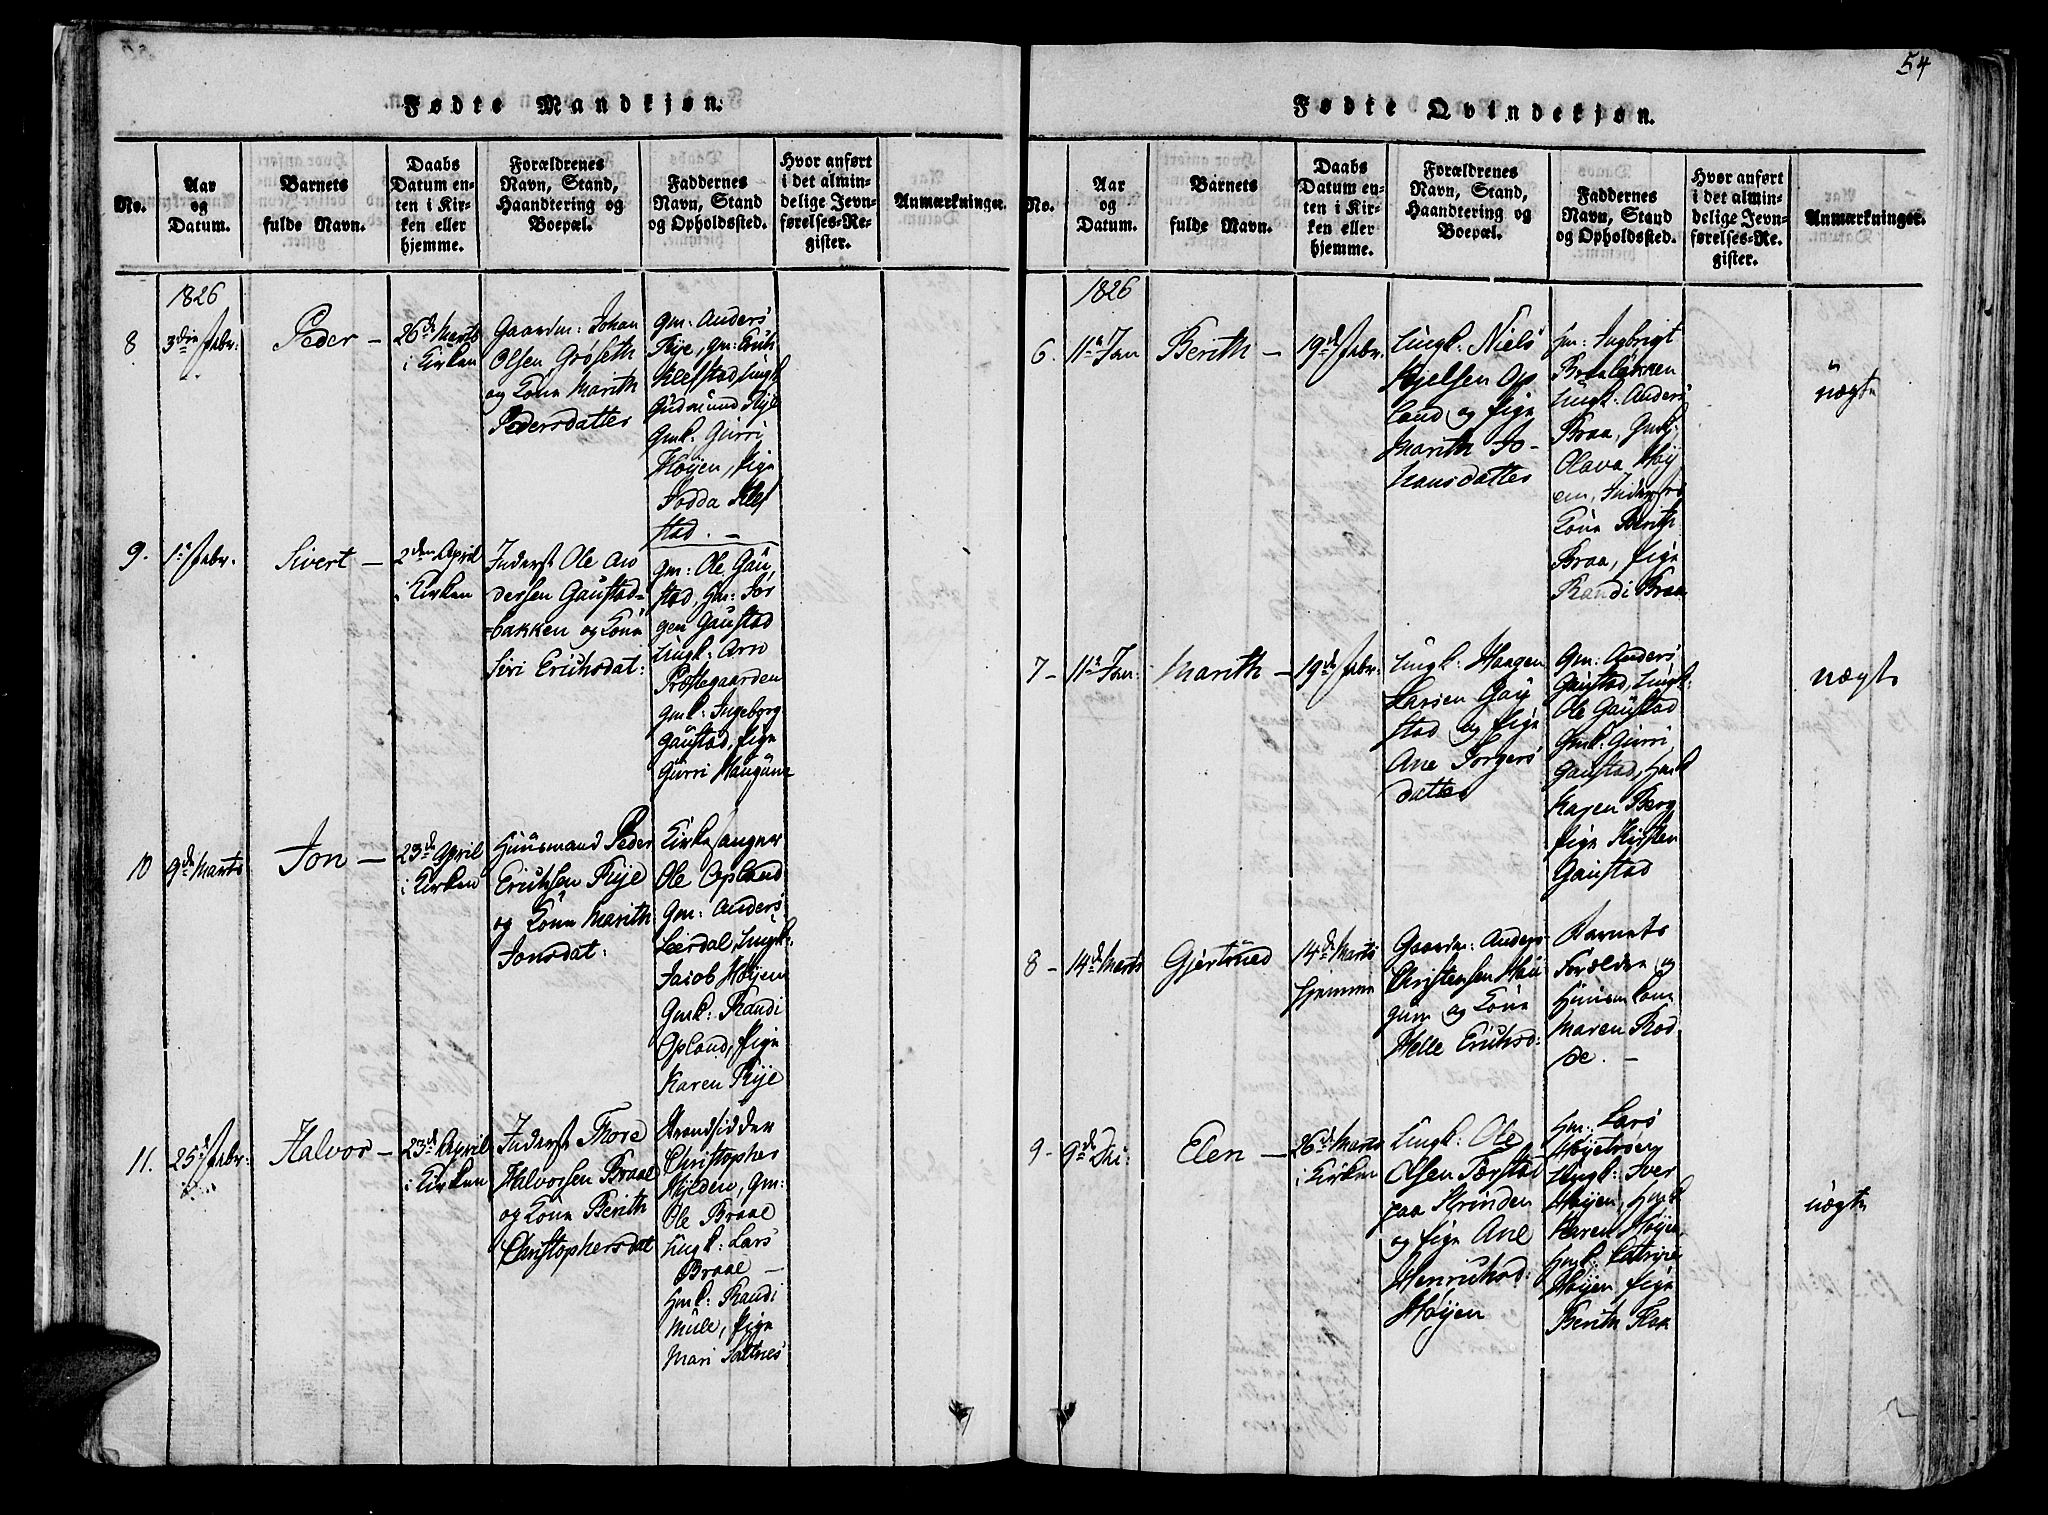 54
Fødte Mandkjøn.
No.
Aar
og
Datum.
Barnets
fulde Navn.
Daabs
Datum en-
ten i Kir-
ken eller
hjemme.
Forældrenes
Navn, Stand,
Haandtering og
Boepæl.
Faddernes
Navn, Stand
og Opholdssted.
Hvor anført
i det almin-
delige Jevn-
førelses-Re-
gister.
Anmærkninger.
1826
8
3die Febr:
Peder —
26de Marts
i Kirken
Gaardm: Johan
Olsen Grøseth
og Kone Marith
Pedersdatter
Gm: Anders
Rye, Gm: Erich
Klefstad, Ungk:
Gudmund Rye
Gmk: Gurri
Høyen, Pige
Kle
stad. —
9.
1ste Febr.
Sivert —
2den April
i Kirken
Inderst Ole An
dersen Gaustad-
bakken og Kone
Siri Erichsdat:
Gm: Ole Gau
stad, Hm: Jør
gen Gaustad
Ungk: Arn
Præstegaarden
Gmk: Ingeborg
Gaustad, Pige
Gurri Haugum
10
9de Marts
Jon —
23de April
i Kirken
Huusmand Peder
Erichsen Rye
og Kone Marith
Jonsdat:
Kirkesanger
Ole Opland
Gm: Anders
Leerdal, Ungk:
Jacob Høyem
Gmk: Randi
Opland, Pige
Karen Rye
11.
25de Febr:
Halvor —
23de April
i Kirken
Inderst Thore
Halvorsen Braae
og Kone Berith
Christophersdat
Strandsidder
Christopher
Hylden, Gm:
Ole Braae
Ungk: Lars
Braae —
Hmk: Randi
Mule, Pige
Mari Saltnes
Fødte Qvindekjøn.
No.
Aar
og
Datum.
Barnets
fulde Navn.
Daabs
Datum en-
ten i Kir-
ken eller
hjemme.
Forældrenes
Navn, Stand,
Haandtering og
Boepæl.
Faddernes
Navn, Stand
og Opholdssted.
Hvor anført
i det almin-
delige Jevn-
førelses-Re-
gister.
Anmærkninger.
1826
6.
11te Jan
Berith —
19de Febr.
Ungk: Niels
Kjelsen Op
land og Pige
Marith Jo-
hansdatter
Hm: Ingbrigt
Braaløkken
Ungk: Anders
Braa, Gmk:
Olava Høy
em, Inderst
Kone Berith
Braa, Pige
Randi Braa
uægte
7 —
11te Jan:
Marith —
19de Febr:
Ungk: Haagen
Larsen Gau
stad og Pige
Ane Jørgens
datter
Gm: Anders
Gaustad, Ungk:
Ole Gaustad
Gmk: Gurri
Gaustad, Hmk
Karen Berg
Pige Kirsten
Gaustad
uægte
8 —
14de Marts
Gjertrued
14de Marts
hjemme
Gaardm: Anders
Christensen Hau
gum og Kone
Helle Erichsd:
Barnets
Forældre og
Huusm: Kone
Maren Rod
de. —
9 —
9de
Elen —
26de Marts
i Kirken
Ungk: Ole
Olsen
paa Strinden
og Pige Ane
Henrichsd:
Høyen
Hm: Lars
Høyetrøen
Ungk: Iver
Høyen, Hmk
Karen Høyen
Hmk: Catrine
Høyen Pige
Berith
uægte